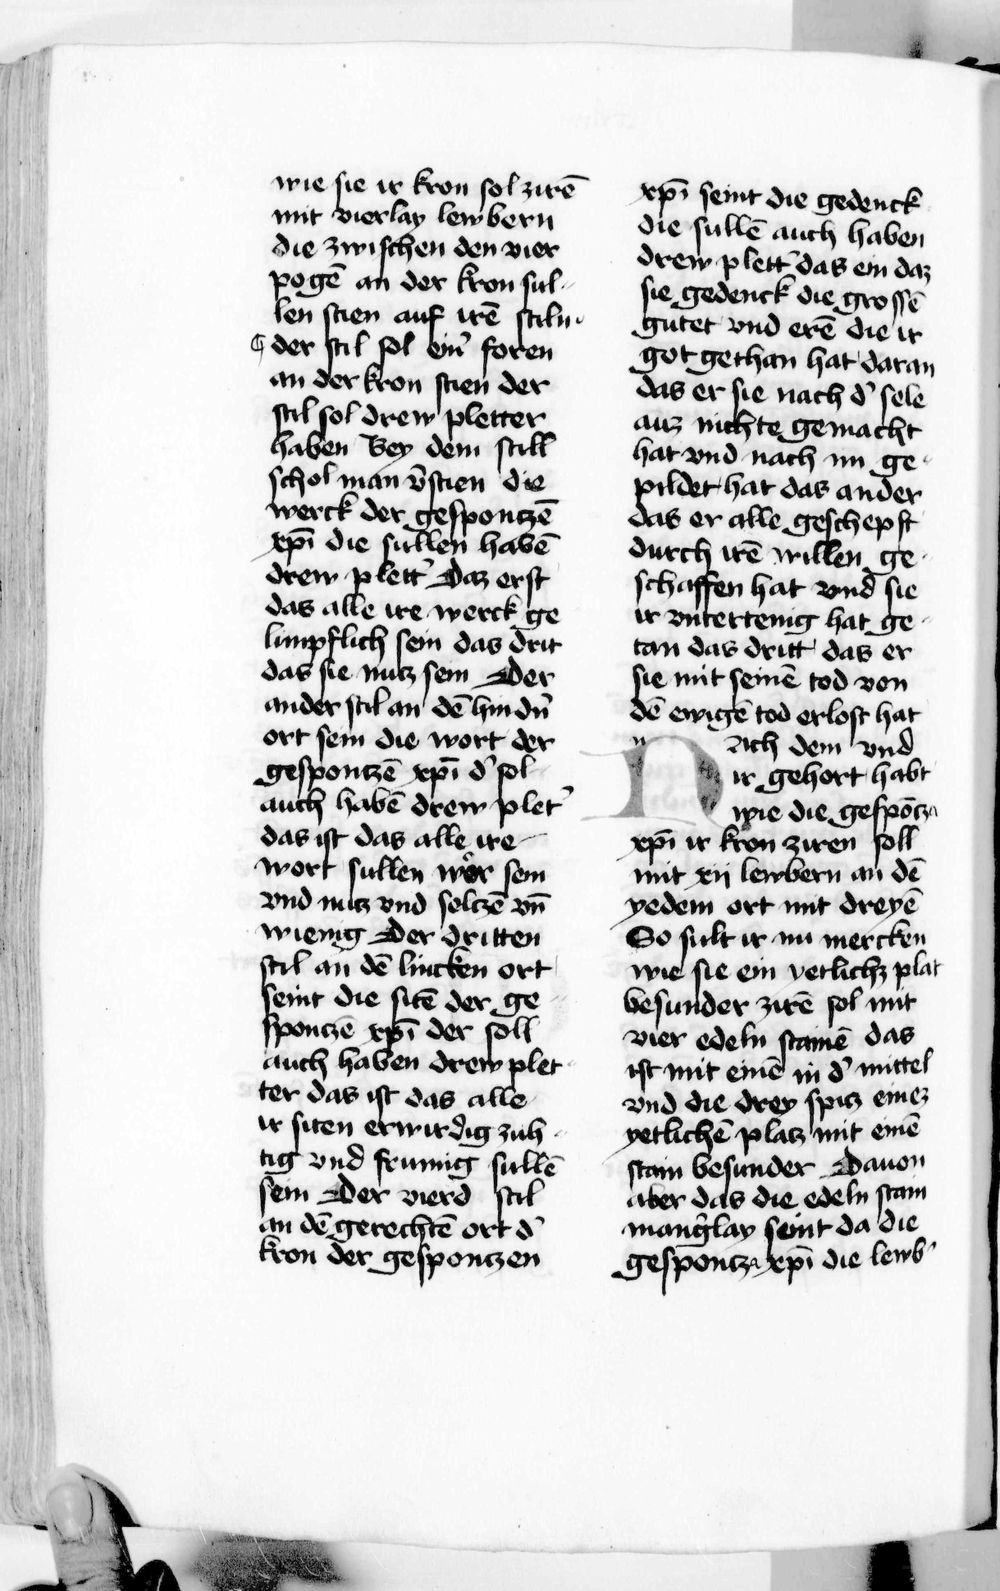 wie sie ir kron sol zirē
mit vierlay lewbern
die zwischen den vier
pogē an der kron sul-
len stien auf irē stiln
der stil sol ein̄ foren
an der kron stien der
stil sol drew pletter
haben Bey dem still
schol man v̄stien die
werck der gespontzē
xp̄i die sullen habē
drew plett' Daz erst
das alle ire werck ge
limpflich sein das drit
das sie nutz sein Der
ander stil an dē hindn̄
ort sein die wort der
gespontzē xp̄i d' sol
auch habē drew plet'
das ist das alle ire
wort sullen wor sein
vnd nutz vnd seltzē vn̄
wienig Der dritten
stil an dē lincken ort
seint die sitē der ge
spontzē xp̄i der soll
auch haben drew plet
ter das ist das alle
ir siten erwirdig zuh
tig vnd frumig sullē
sein Der vierd stil
an dē gerechtē ort d'
kron der gespontzen
xp̄i seint die gedenck
die sullē auch haben
drew plett' das ein daz
sie gedenck die grossē
gutet vnd erē die ir
got gethan hat daran
das er sie nach d' sele
auz nichte gemacht
hat vnd nach im ge-
pildet hat das ander
das er alle geschepft
durch irē willen ge-
schaffen hat vnd sie
ir vntertenig hat ge-
tan das dritt das er
sie mit seinē tod von
dē ewigē tod erlost hat
Nach dem vnd
ir gehort habt
wie die gespōtz
xp̄i ir kron ziren soll
mit xij lewbern an dē
yedem ort mit dreyē
So sult ir nu mercken
wie sie ein yetlichz plat
besunder zirē sol mit
vier edeln stainē das
ist mit einē in d' mittel
vnd die drey spitz einez
yetlichē platz mit einē
stain besunder Dauon
aber das die edeln stain
mang'lay seint da die
gespontz xp̄i die lewb'